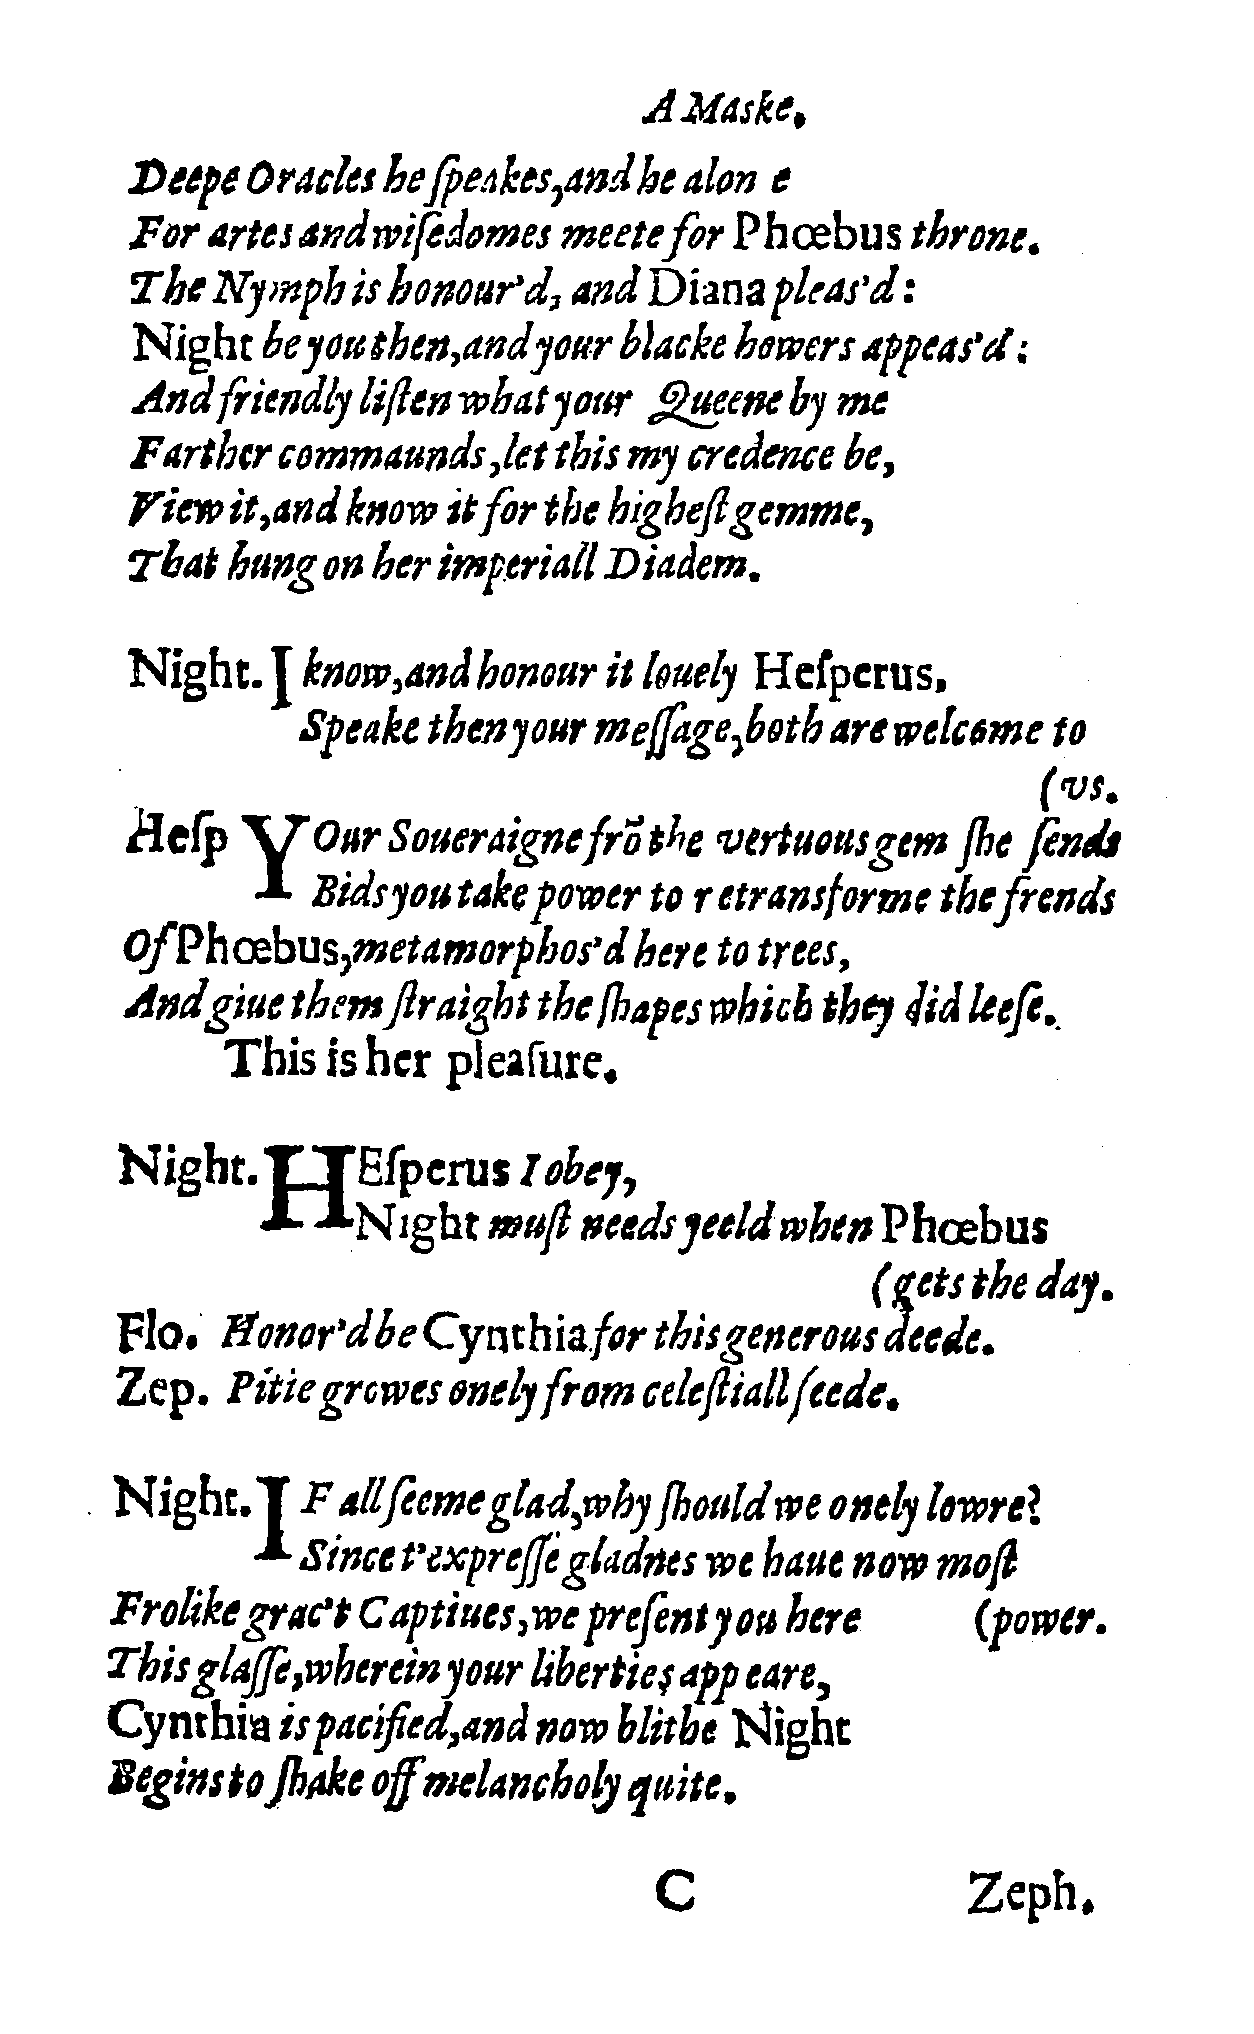 A Maske.
Deepe Oracles he ſpeakes,and he alon e
For artes and wiſedomes meete for Phœbus throne.
The Nymph is honour'd, and Diana pleas'd:
Night be you then,and your blacke howers appeas'd:
And friendly liſten what your Queene by me
Farther commaunds,let this my credence be,
View it,and know it for the higheſt gemme,
That hung on her imperiall Diadem.
Night. I know,and honour it louely Heſperus.
Speake then your meſſage,both are welcome to
(vs.
Heſp YOur Soueraigne frō the vertuous gem ſhe ſends
Bids you take power to retransforme the frends
Of Phœbus,metamorphos'd here to trees,
And giue them ſtraight the ſhapes which they did leeſe.
This is her pleaſure.
Night. HEſperus I obey,
Night muſt needs yeeld when Phœbus
(gets the day.
Flo. Honor'd be Cynthia for this generous deede.
Zep. Pitie growes onely from celeſtiall ſeede.
Night. IF all ſeeme glad,why ſhould we onely lowre?
Since t'expreſſe gladnes we haue now moſt
Frolike grac't Captiues,we preſent you here (power.
This glaſſe,wherein your liberties appeare,
Cynthia is pacified,and now blithe Night
Begins to ſhake off melancholy quite.
C Zeph.